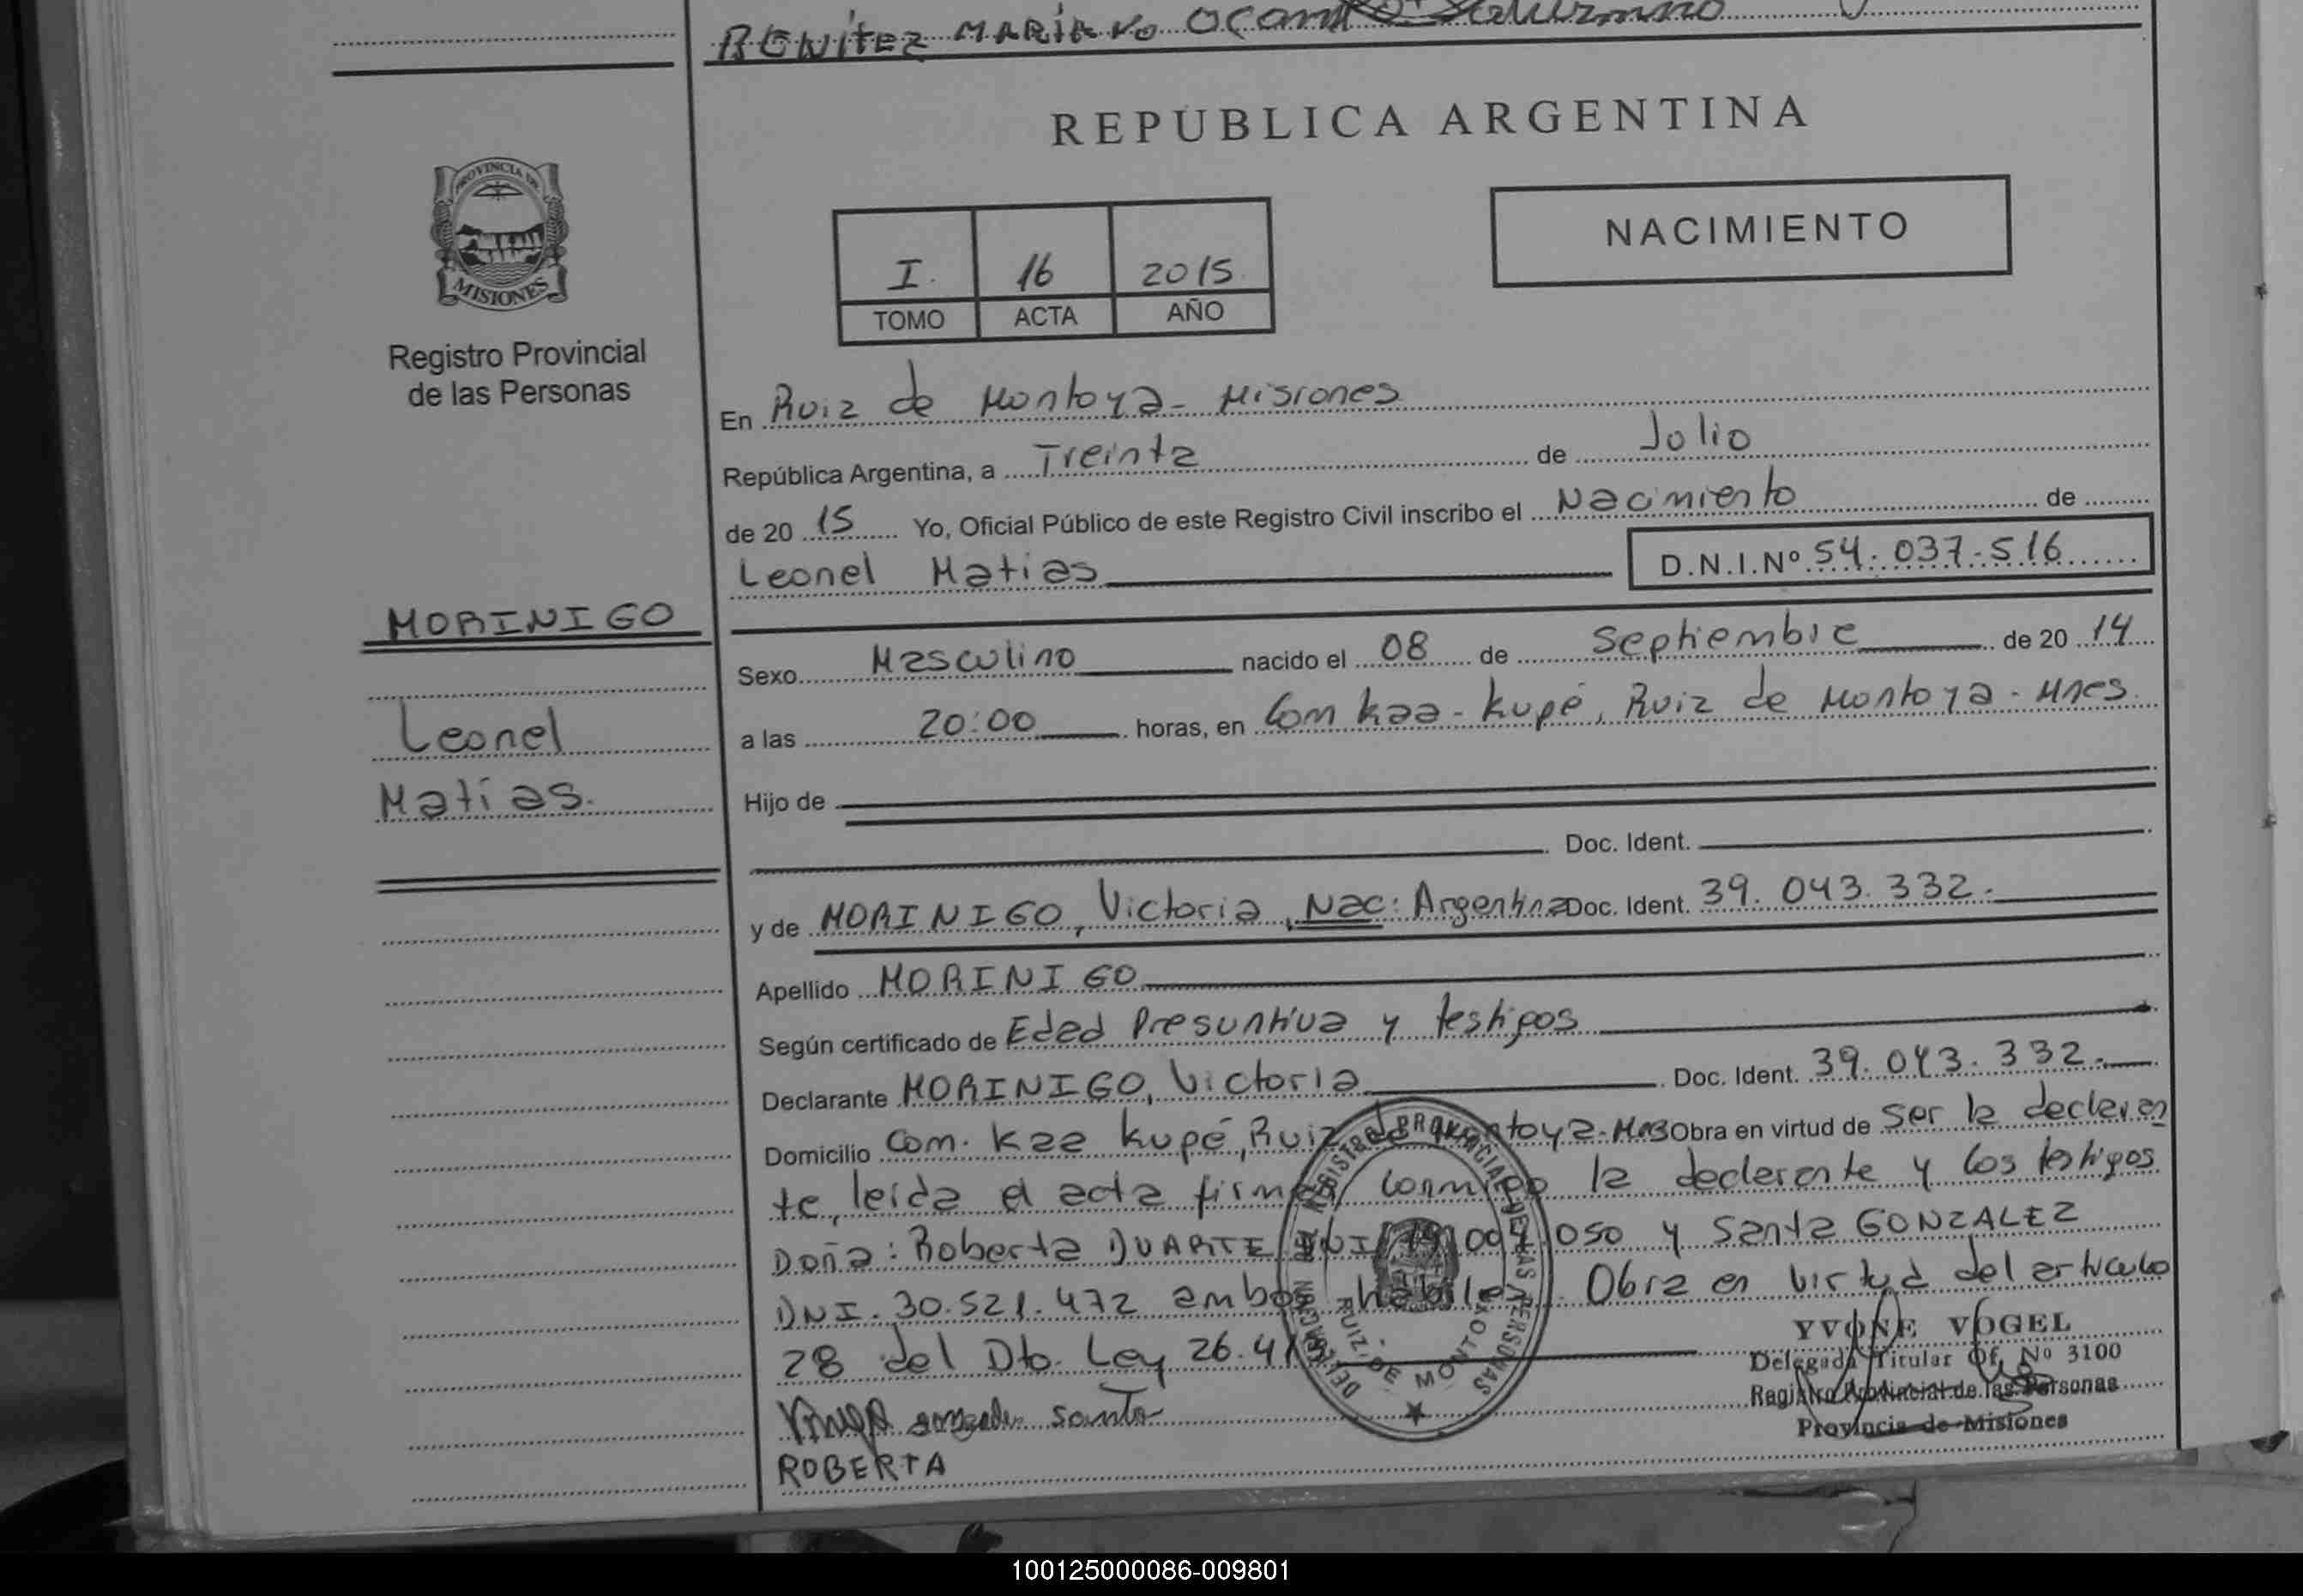 BENITEZ MARIANO
REPÚBLICA ARGENTINA
PROVINCIA DE
MISIONES
Registro Provincial
de las Personas
I. 16 2015
TOMO ACTA AÑO
NACIMIENTO
En Ruiz de Montoya - Misiones
República Argentina, a Treinta de Julio
de 20 15 Yo, Oficial Público de este Registro Civil inscribo el Nacimiento de
Leonel Matias D.N.I.Nº 54.037.516
MORINIGO
Leonel
Matías.
Sexo Masculino nacido el 08 de Septiembre de 20 14
a las 20:00 horas, en Com Kaa - Kupé, Ruiz de Montoya - Mnes.
Hijo de
Doc. Ident.
y de MORINIGO, Victoria, Nac: Argentina Doc. Ident. 39.043.332.
Apellido MORINIGO
Según certificado de Edad Presuntiva y testigos
Declarante MORINIGO, Victoria Doc. Ident. 39.043.332.
Domicilio Com. Kaa Kupé, Ruiz de Montoya - Mnes Obra en virtud de ser la declaran
te, leída el acta firman conmigo la declarante y los testigos
Doña: Roberta DUARTE DNI 050 y Santa GONZALEZ
DNI. 30.521.472 ambos hábiles. Obra en virtud del articulo
28 del Dto. Ley 26.41
YVONE VOGEL
Delegada Titular Of. Nº 3100
Registro Provincial de las Personas
Provincia de Misiones
Santa
ROBERTA
REGISTRO PROVINCIAL DE LAS PERSONAS
DELEGACION
RUIZ DE MONTOYA
100125000086-009801